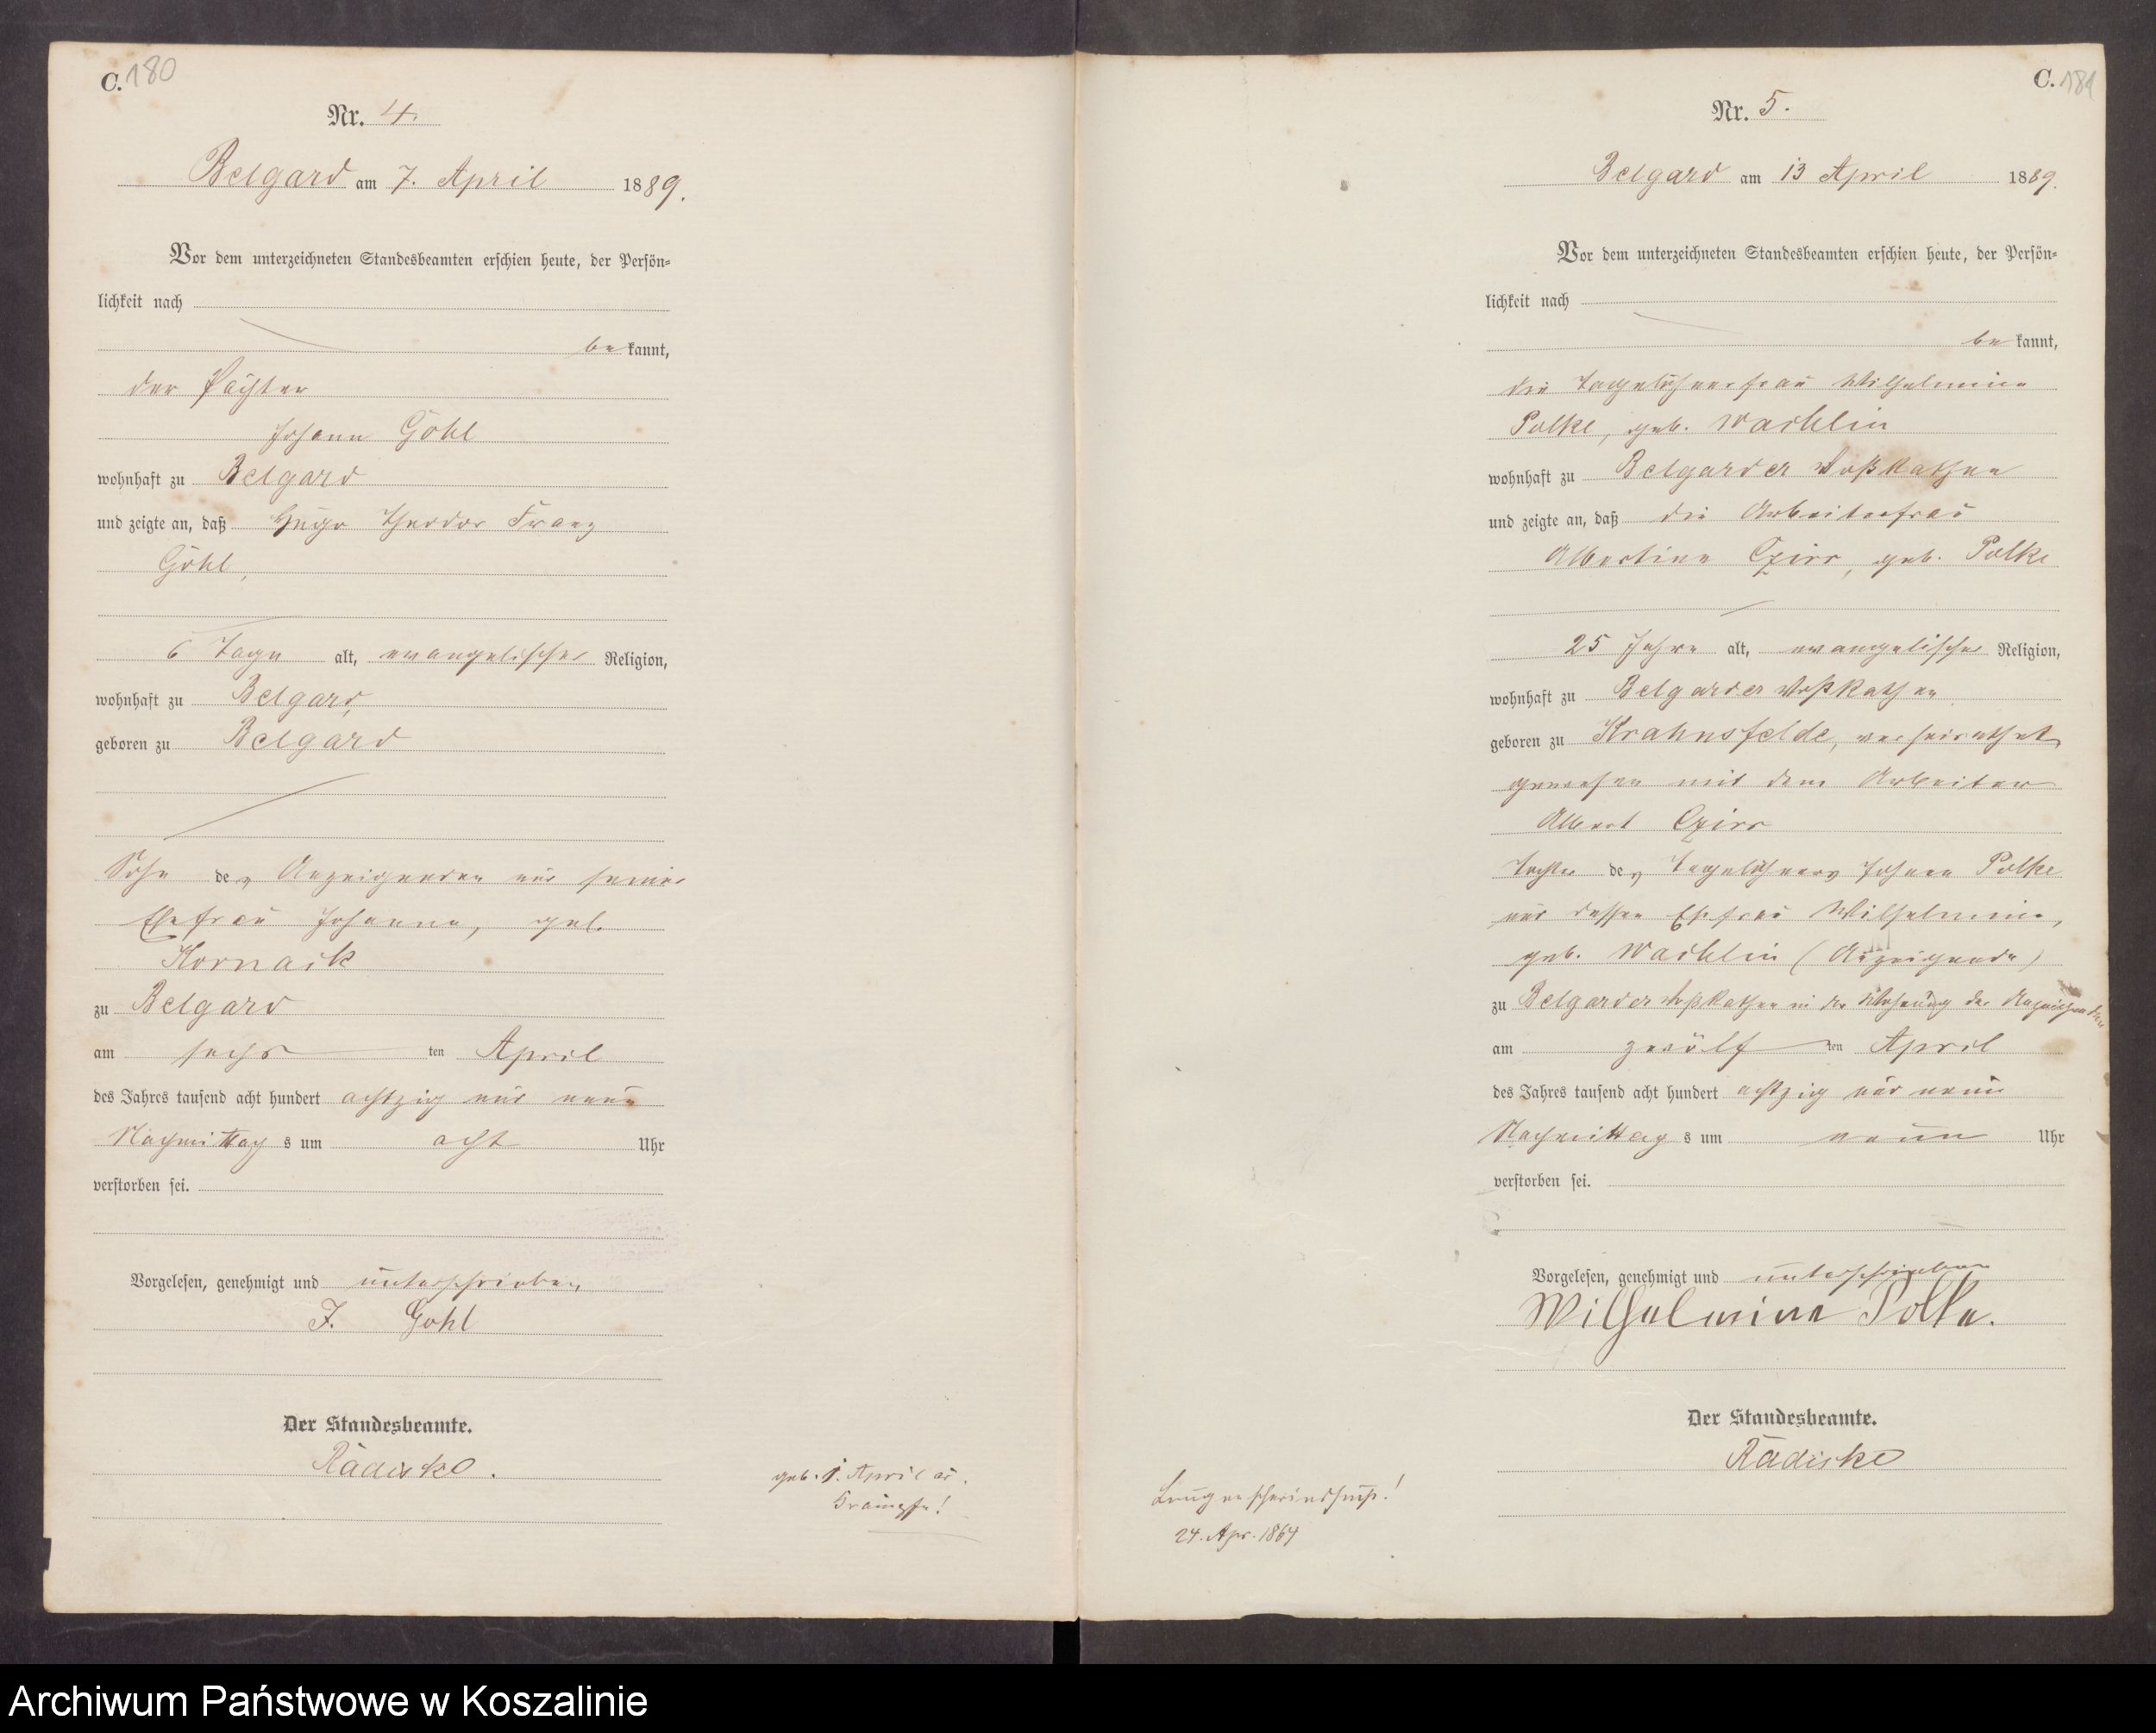 C. 180
Nr. 4.
Belgard am 7. April 1889.
Vor dem unterzeichneten Standesbeamten erschien heute, der Persön=
lichkeit nach
be kannt,
der Pächter
Johann Göhl
wohnhaft zu Belgard
und zeigte an, daß Hugo Theodor Franz
Göhl,
6 Tage alt, evangelischer Religion,
wohnhaft zu Belgard,
geboren zu Belgard
Sohn des Anzeigenden und seiner
Ehefrau Johanna, geb.
Kornack
zu Belgard
am sechs ten April
des Jahres tausend acht hundert achtzig und neun
Nachmittag s um acht Uhr
verstorben sei.
Vorgelesen, genehmigt und unterschrieben
J. Gohl
Der Standesbeamte.
Rädiske.
geb. 1. April
Krämpfe!
C. 181
Nr. 5.
Belgard am 13 April 1889.
Vor dem unterzeichneten Standesbeamten erschien heute, der Persön=
lichkeit nach
be kannt,
die Tagelöhnerfrau Wilhelmine
Polke, geb. Wachlin
wohnhaft zu Belgarder Voßkathen
und zeigte an, daß die Arbeiterfrau
Albertine Czirr, geb. Polke
25 Jahre alt, evangelischer Religion,
wohnhaft zu Belgarder Voßkathen
geboren zu Krahnsfelde, verheirathet
gewesen mit dem Arbeiter
Albert Czirr
Tochter des Tagelöhners Johann Polke
und dessen Ehefrau Wilhelmine,
geb. Wachlin (Anzeigende)
zu Belgarder Voßkathen in der Wohnung der Anzeigenden
am zwölf ten April
des Jahres tausend acht hundert achtzig und neun
Nachmittag s um neun Uhr
verstorben sei.
Vorgelesen, genehmigt und unterschrieben
Wilhelmine Polke.
Der Standesbeamte.
Rädiske
Lungenschwindsucht!
24. Apr. 1864
Archiwum Państwowe w Koszalinie